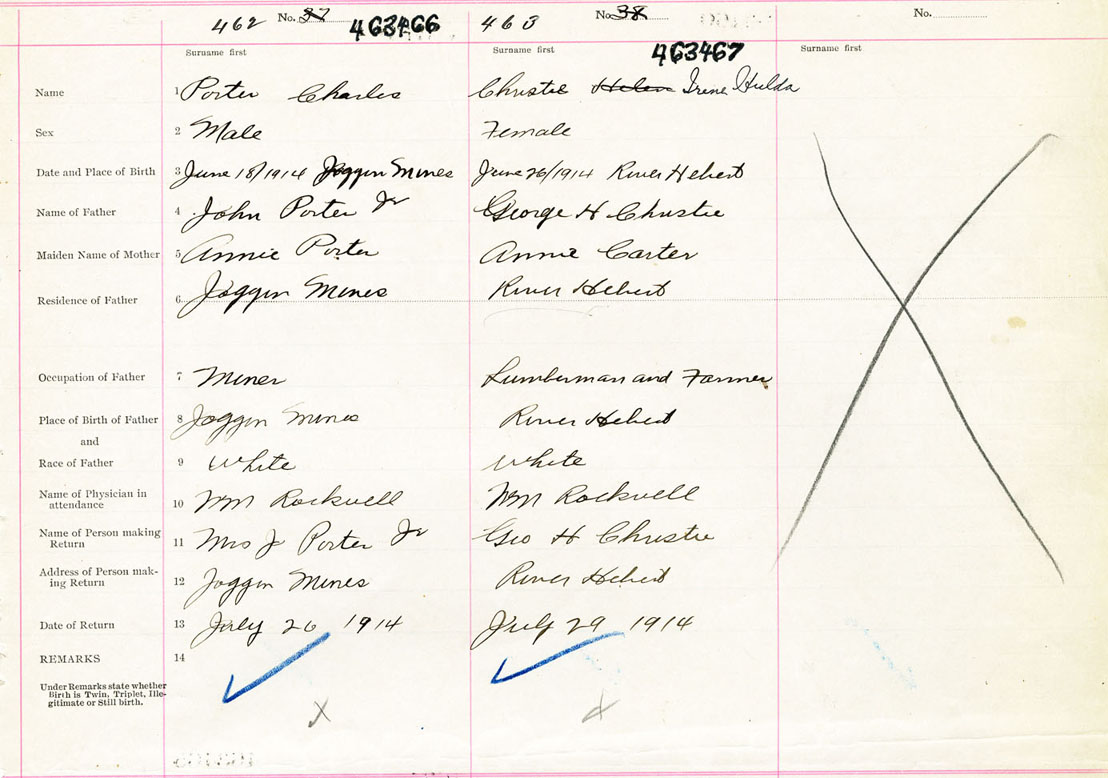 462 No. 37 463466 463 No. 38 No.
Surname first Surname first 463467 Surname first
Name 1 Porter Charles Christie Helen Irene Hulda
Sex 2 Male Female
Date and Place of Birth 3 June 18/1914 Joggin Mines June 26/1914 River Hebert
Name of Father 4 John Porter Jr George H Christie
Maiden Name of Mother 5 Annie Porter Annie Carter
Residence of Father 6 Joggin Mines River Hebert
Occupation of Father 7 Miner Lumberman and Farmer
Place of Birth of Father 8 Joggin Mines River Hebert
and
Race of Father 9 White White
Name of Physician in
attendance 10 Wm Rockwell Wm Rockwell
Name of Person making
Return 11 Mrs J Porter Jr Geo H Christie
Address of Person mak-
ing Return 12 Joggin Mines River Hebert
Date of Return 13 July 26 1914 July 29 1914
REMARKS 14
Under Remarks state whether
Birth is Twin, Triplet, Ille-
gitimate or Still birth.